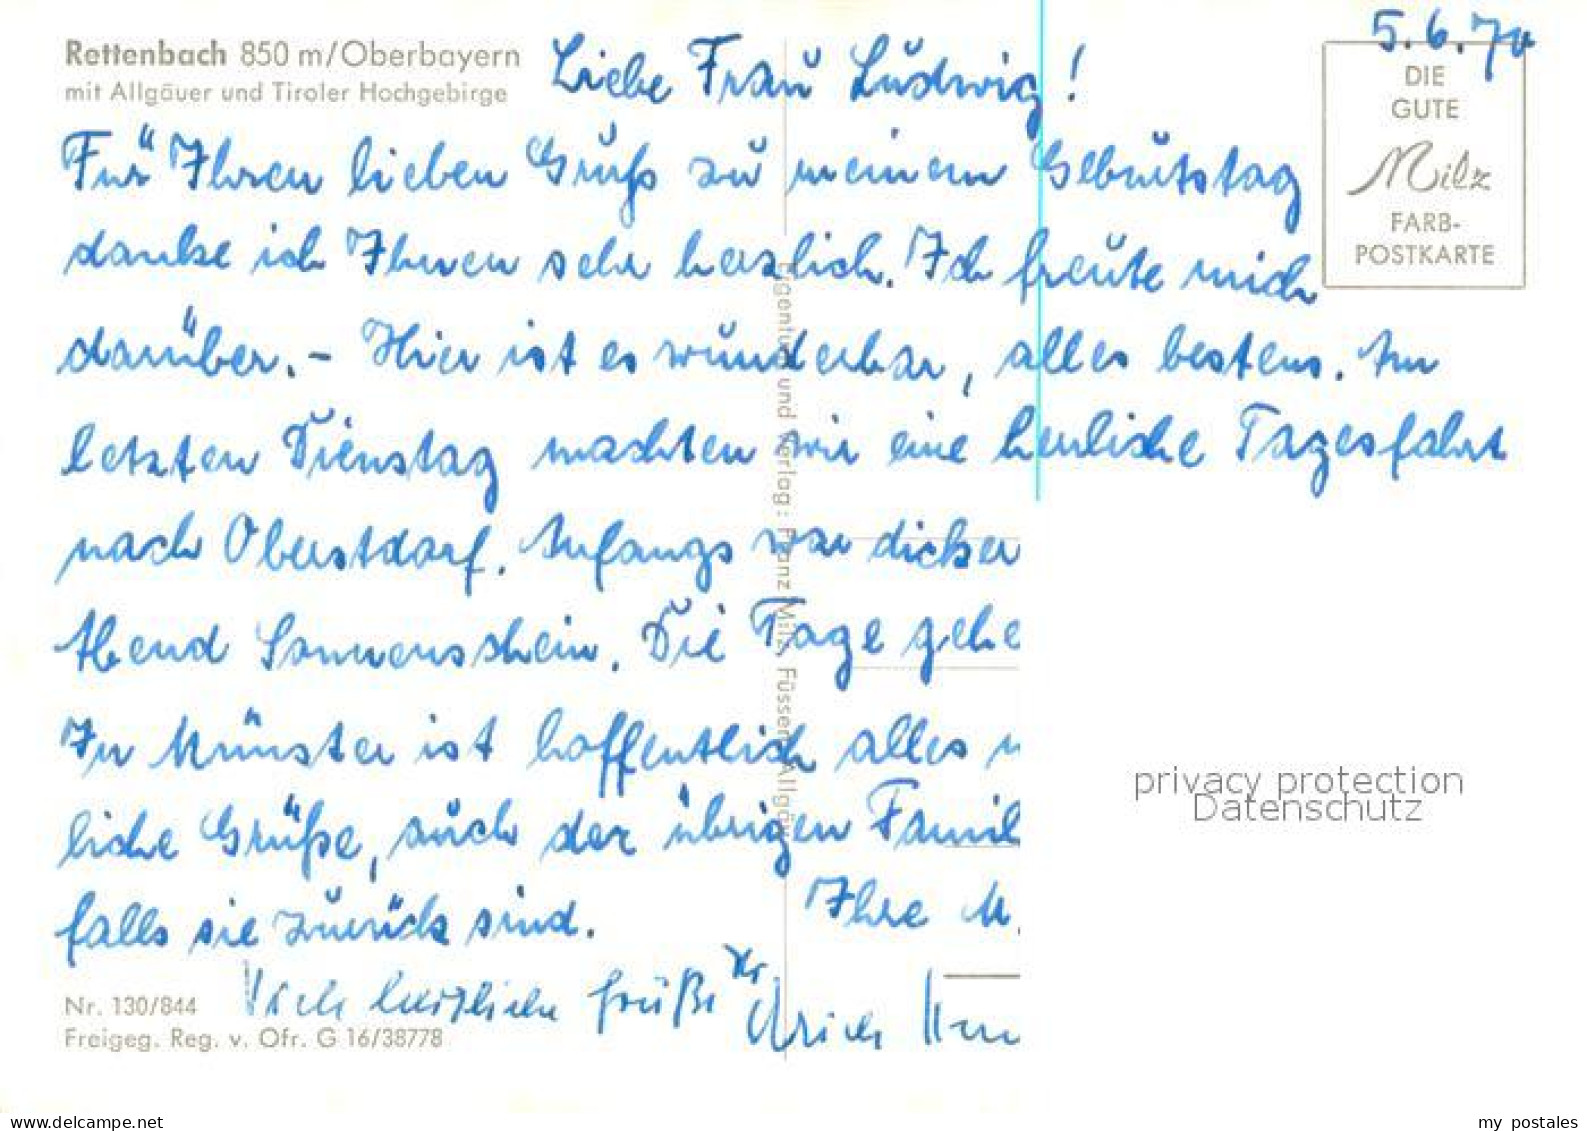 5.6.70
Rettenbach 850 m/Oberbayern
mit Allgäuer und Tiroler Hochgebirge
Liebe Frau Ludwig!
DIE
GUTE
Milz
FARB-
POSTKARTE
Für Ihren lieben Gruß zu meinem Geburtstag
danke ich Ihnen sehr herzlich. Ich freute mich
darüber. – Hier ist es wunderbar, alles bestens. Am
letzten Dienstag machten wir eine herrliche Tagesfahrt
nach Oberstdorf. Anfangs war dicker
Abend Sonnenschein. Die Tage gehe
In Münster ist hoffentlich alles
liche Grüße, auch der übrigen Famil
falls sie zurück sind.
Ihre M.
herzliche Grüße
Eigentum und Verlag: Franz Milz, Füssen/Allgäu
Nr. 130/844
Freigeg. Reg. v. Ofr. G 16/38778
privacy protection
Datenschutz
www.delcampe.net
my_postales